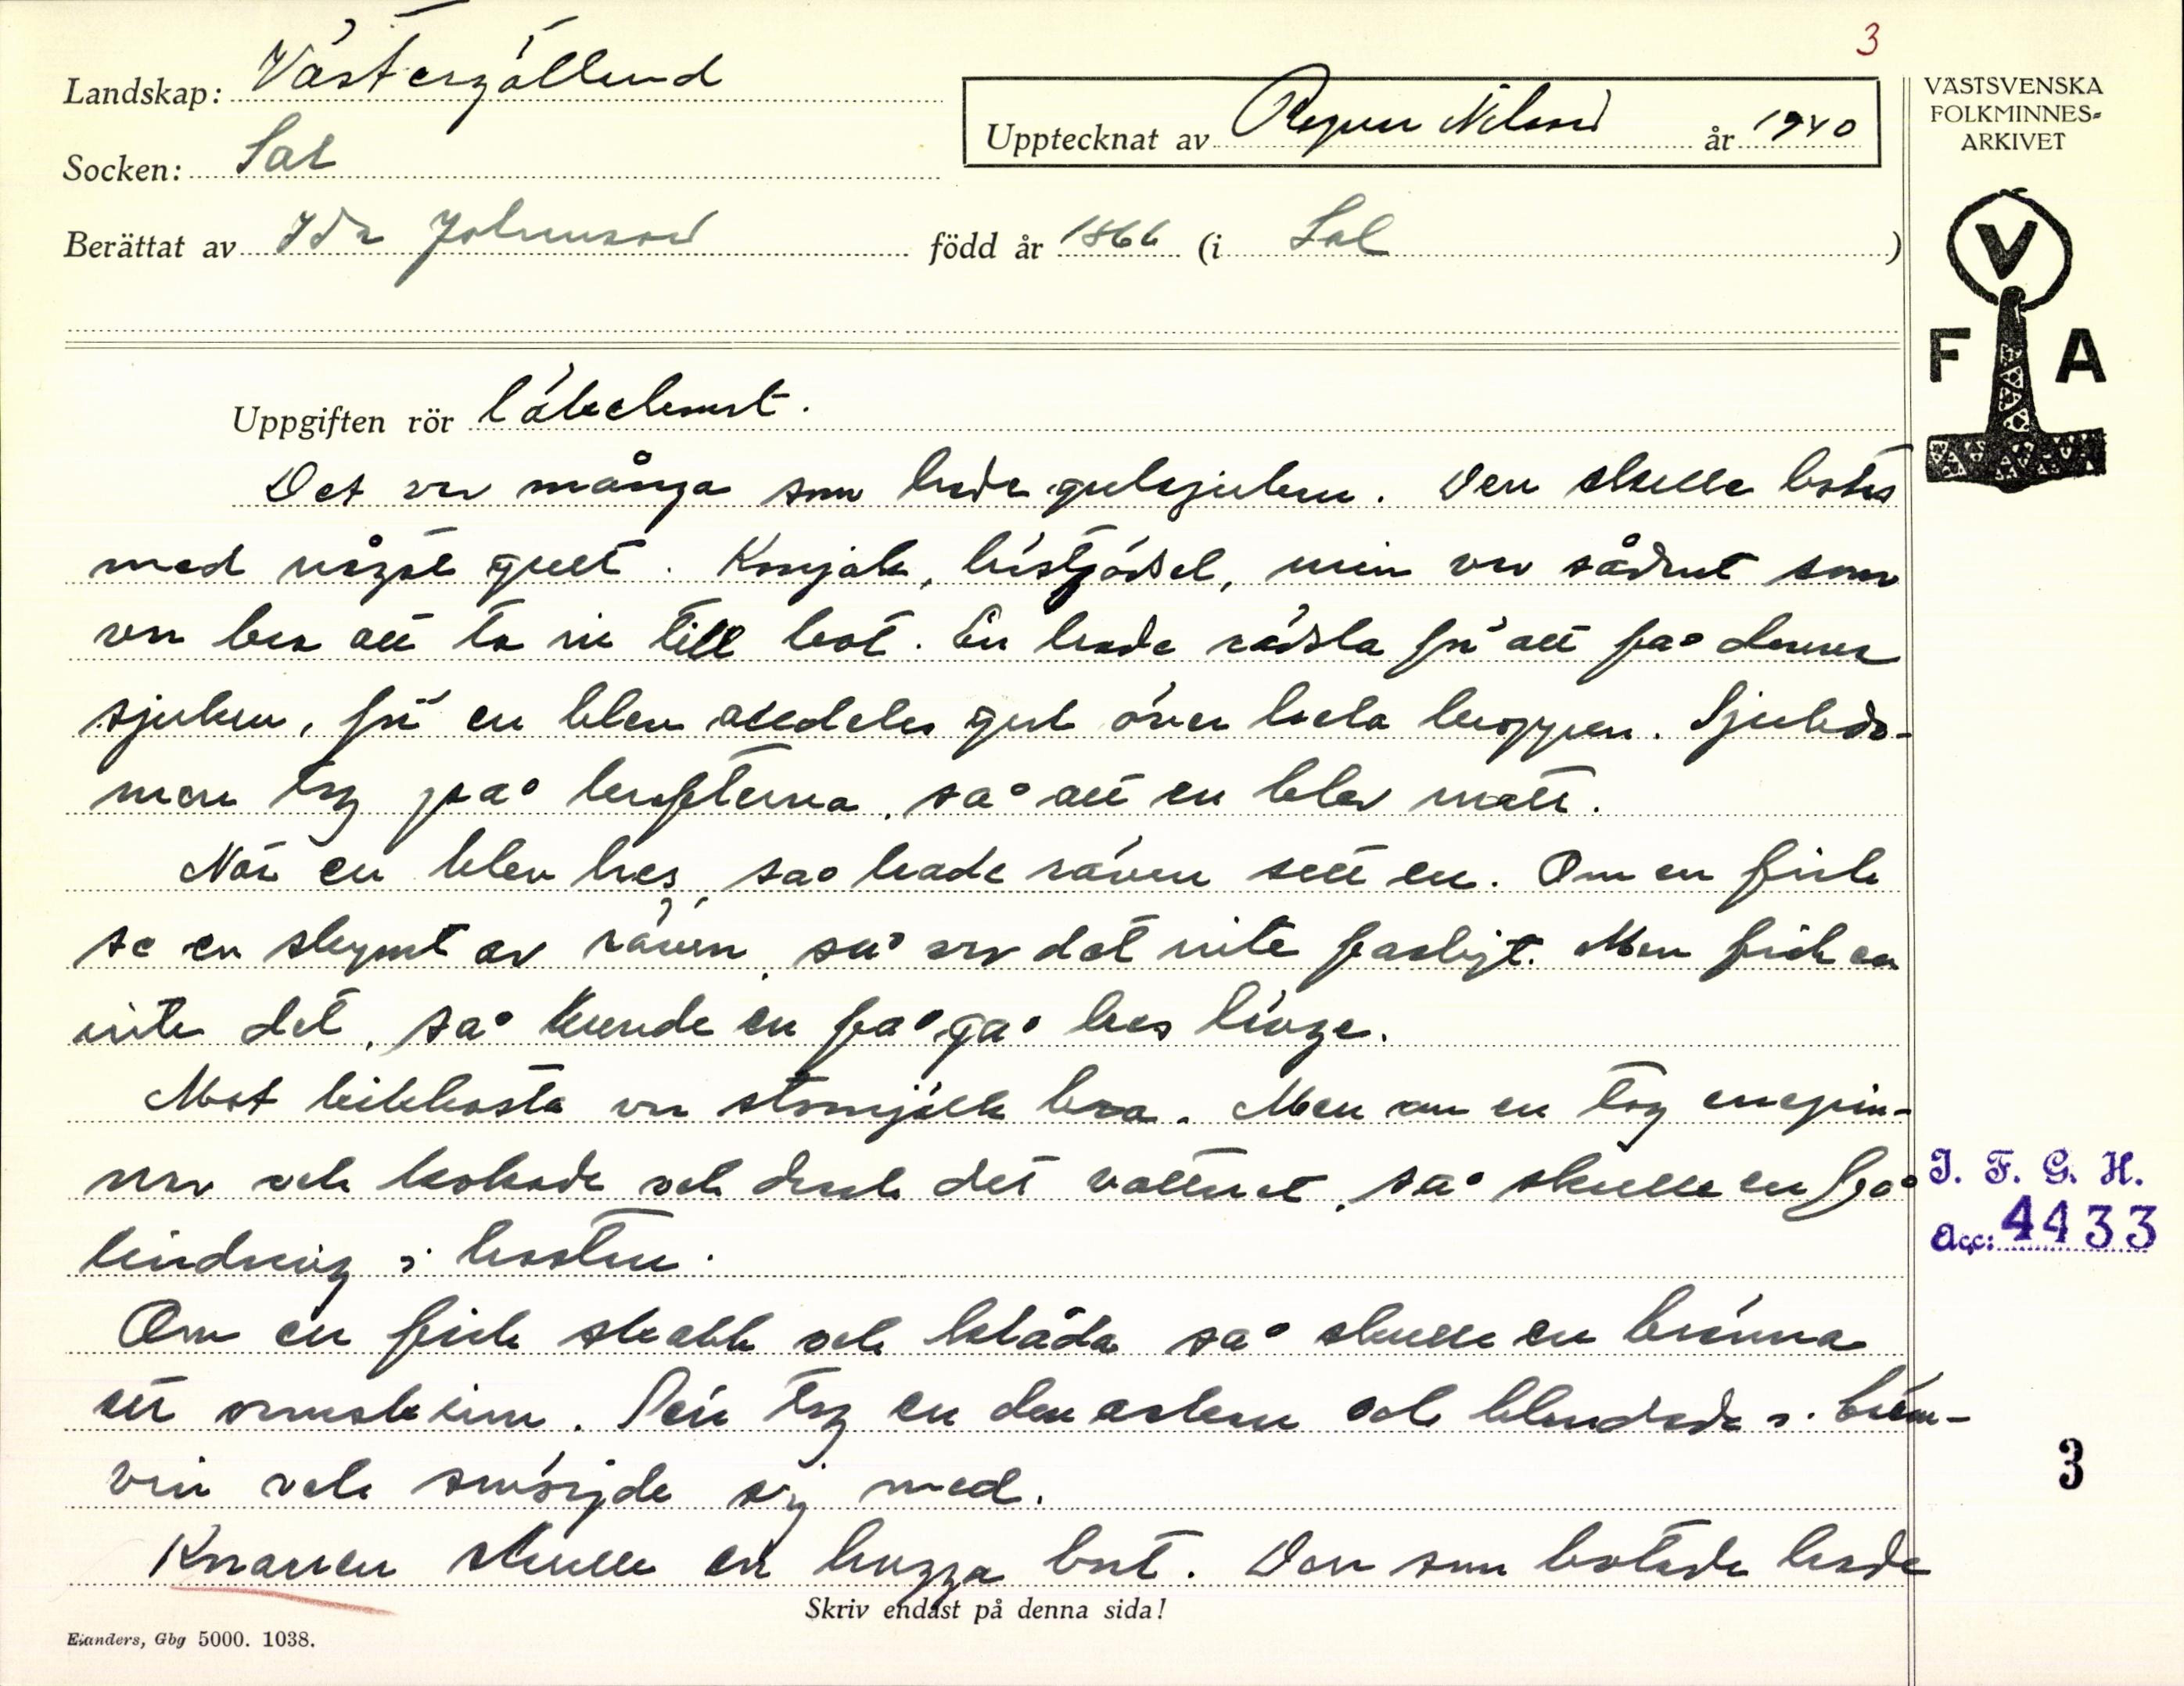 3
Landskap: Västergötland
Upptecknat av Ragnar Nilsson år 1940
VÄSTSVENSKA
FOLKMINNES-
ARKIVET
Socken: Sal
Berättat av Ida Johansson född år 1866 (i Sal )
V
F A
Uppgiften rör läkekonst.
Det var många som hade gulsjukan. Den skulle botas
med något gult. Konjak, hästgödsel, min var sådant som
var bra att ta in till bot. En hade rädsla för att få denna
sjukan, för en blev alldeles gul över hela kroppen. Sjukdo-
men tog på krafterna, så att en blev matt.
När en blev hes, så hade räven sett en. Om en fick
se en skymt av räven, så var det inte farligt. Men fick en
inte det, så kunde en få gå hes länge.
Mot kikhosta var stomjölk bra. Men om en tog enepin-
nar och kokade och drack det vattnet, så skulle en få
lindring i hosten.
Om en fick skabb och klåda så skulle en bränna
ett ormskinn. Sen tog en den askan och blandade i bränn-
vin och smörjde sig med.
Knarren skulle en hugga bort. Den som botade hade
I. F. G. H.
Acc: 4433
3
Skriv endast på denna sida!
Elanders, Gbg 5000. 1038.